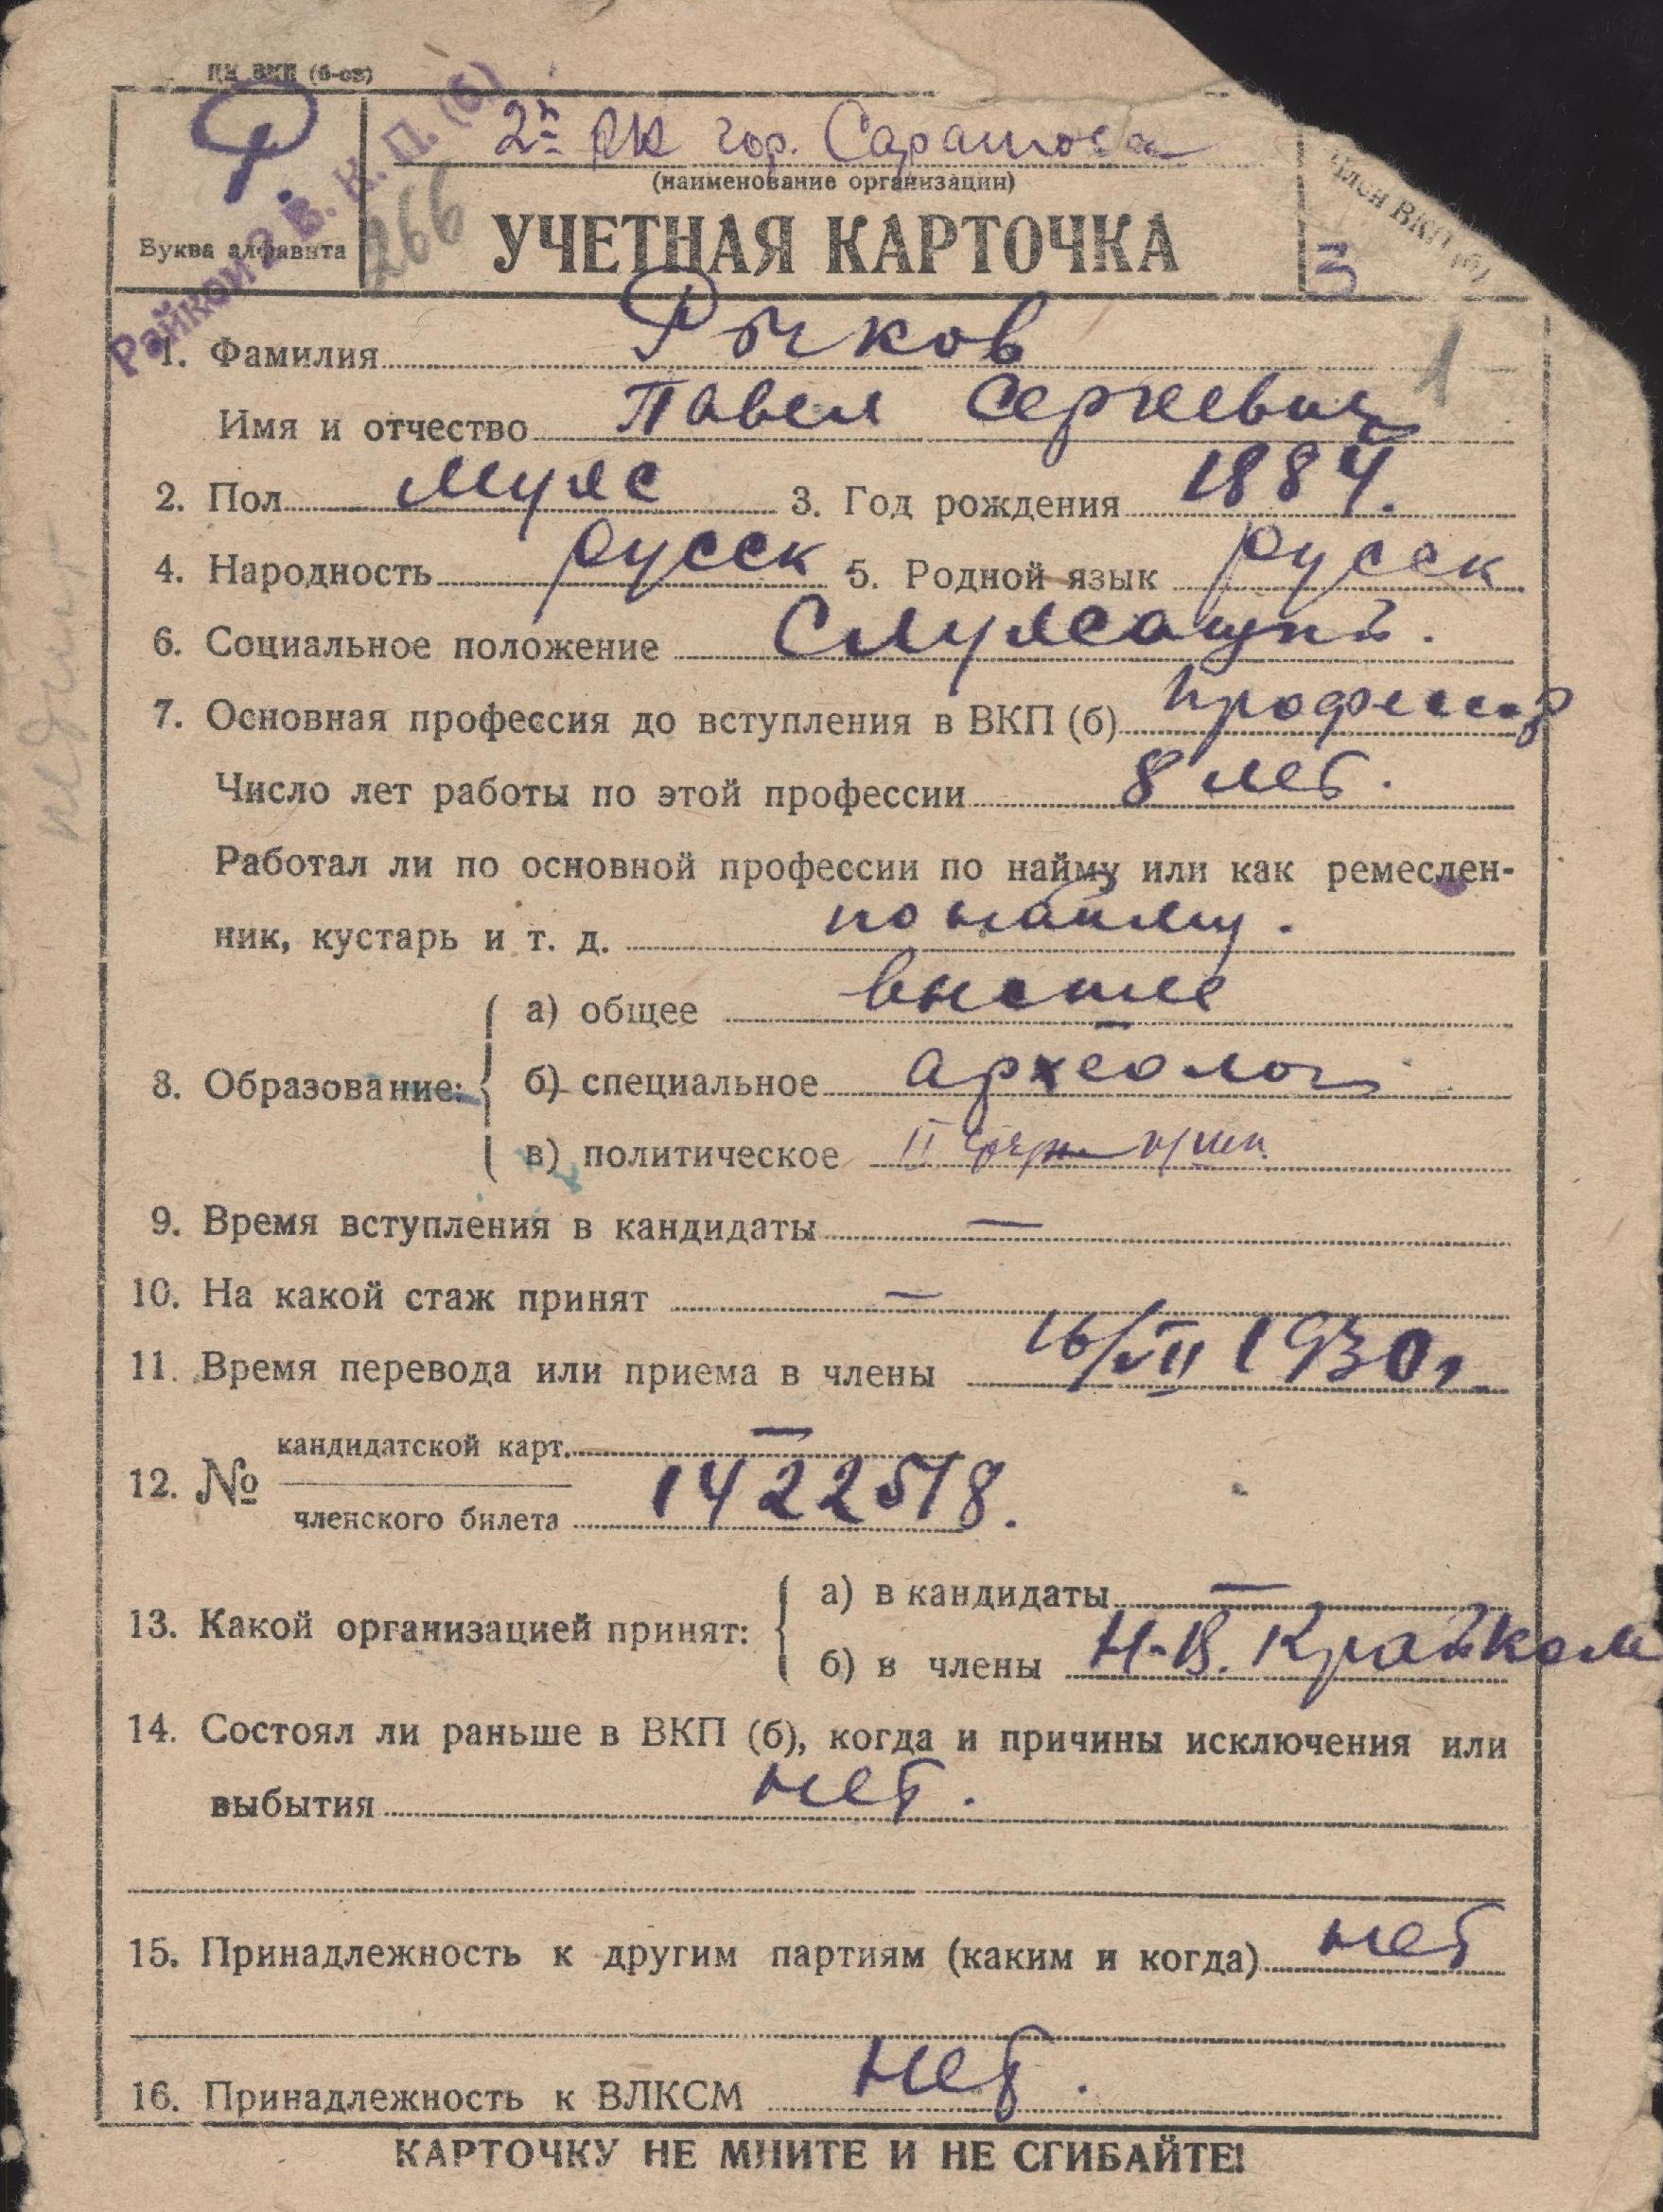 ЦК ВКП (б-ов)
Р
Буква алфавита
Райком 2 В. К. П. (б)
266
2й РК гор. Саратова
(наименование организации)
УЧЕТНАЯ КАРТОЧКА
Член ВКП (б)
1
1. Фамилия Рыков
Имя и отчество Павел Сергеевич
2. Пол Муж 3. Год рождения 1884.
4. Народность русск 5. Родной язык русск
6. Социальное положение Служащий.
7. Основная профессия до вступления в ВКП (б) профессор
Число лет работы по этой профессии 8 лет.
Работал ли по основной профессии по найму или как ремеслен-
ник, кустарь и т. д. по найму.
8. Образование:
а) общее высшее
б) специальное археолог
в) политическое II
9. Время вступления в кандидаты —
10. На какой стаж принят —
11. Время перевода или приема в члены 16/VII 1930г.
12. №
кандидатской карт. —
членского билета 1422518.
13. Какой организацией принят:
а) в кандидаты —
б) в члены Н-В. Крайком
14. Состоял ли раньше в ВКП (б), когда и причины исключения или
выбытия нет.
15. Принадлежность к другим партиям (каким и когда) нет
16. Принадлежность к ВЛКСМ нет.
КАРТОЧКУ НЕ МНИТЕ И НЕ СГИБАЙТЕ!